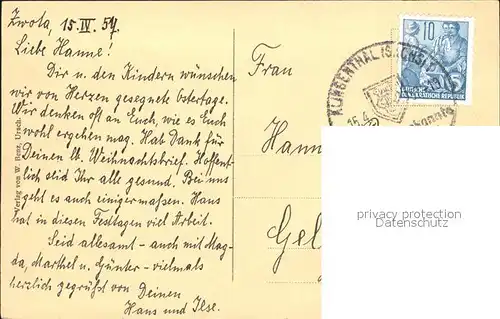 Zwota, 15. IV. 54
Liebe Hanne!
Dir u. den Kindern wünschen
wir von Herzen gesegnete Ostertage.
Wir denken oft an Euch, wie es Euch
wohl ergehen mag. Hab Dank für
Deinen lb. Weihnachtsbrief. Hoffent-
lich seid Ihr alle gesund. Bei uns
geht es auch einigermaßen. Hans
hat in diesen Festtagen viel Arbeit.
Seid allesamt - auch mit Mag-
da, Marthel u. Günter - vielmals
herzlich gegrüßt von Deinen
Hans und Ilse.
Verlag von W. Benz, Urach
Frau
Hann
Gel
10
DEUTSCHE
DEMOKRATISCHE REPUBLIK
KLINGENTHAL (SACHS)
15.
privacy protection
Datenschutz